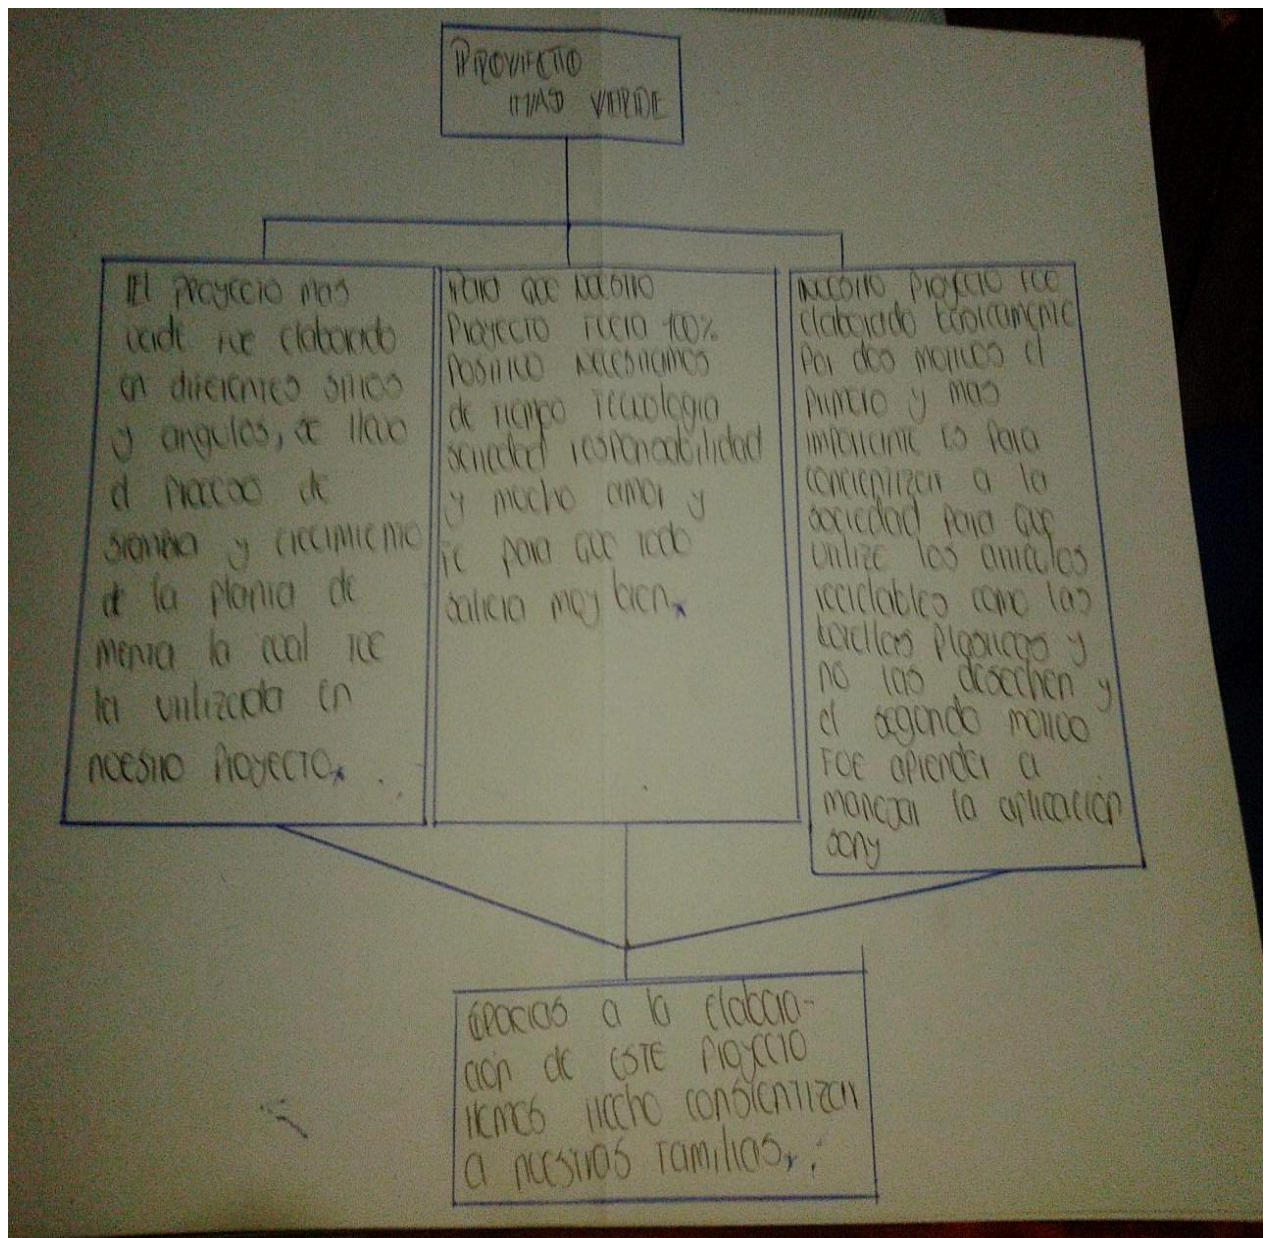 PROYECTO
MAS VERDE
El proyecto mas
verde fue elaborado
en diferentes sitios
y angulos, se llevo
el proceso de
siembra y crecimiento
de la planta de
menta la cual fue
la utilizada en
nuestro Proyecto.
Para que nuestro
Proyecto fuera 100%
Positivo necesitamos
de tiempo tecnologia
seriedad responsabilidad
y mucho amor y
fe para que todo
saliera muy bien.
Nuestro Proyecto fue
elaborado basicamente
Por dos motivos el
primero y mas
importante es para
concientizar a la
sociedad para que
utilize los articulos
reciclables como las
botellas plasticas y
no las desechen y
el segundo motivo
fue aprender a
manejar la aplicación
sony
Gracias a la elabora-
ción de este Proyecto
hemos hecho consientizar
a nuestras familias.